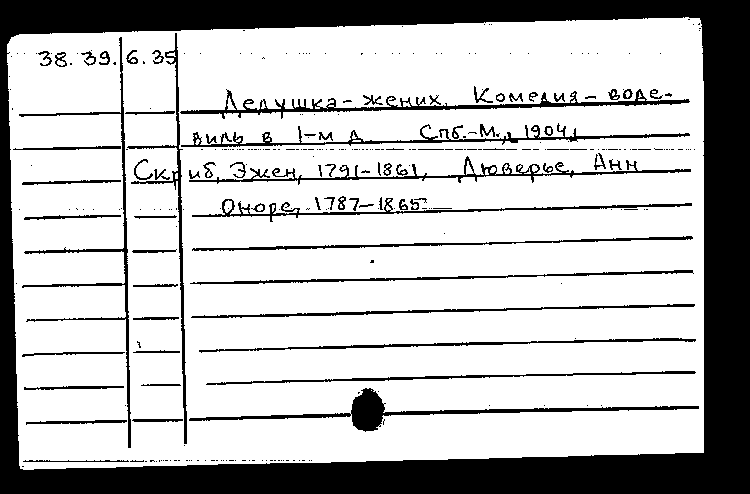 38. 39. 6. 35
Дедушка-жених. Комедия-воде-
виль в 1-м д Спб.-М., 1904,
Скриб, Эжен, 1791-1861, Дюверье, Анн
Оноре, 1787-1865